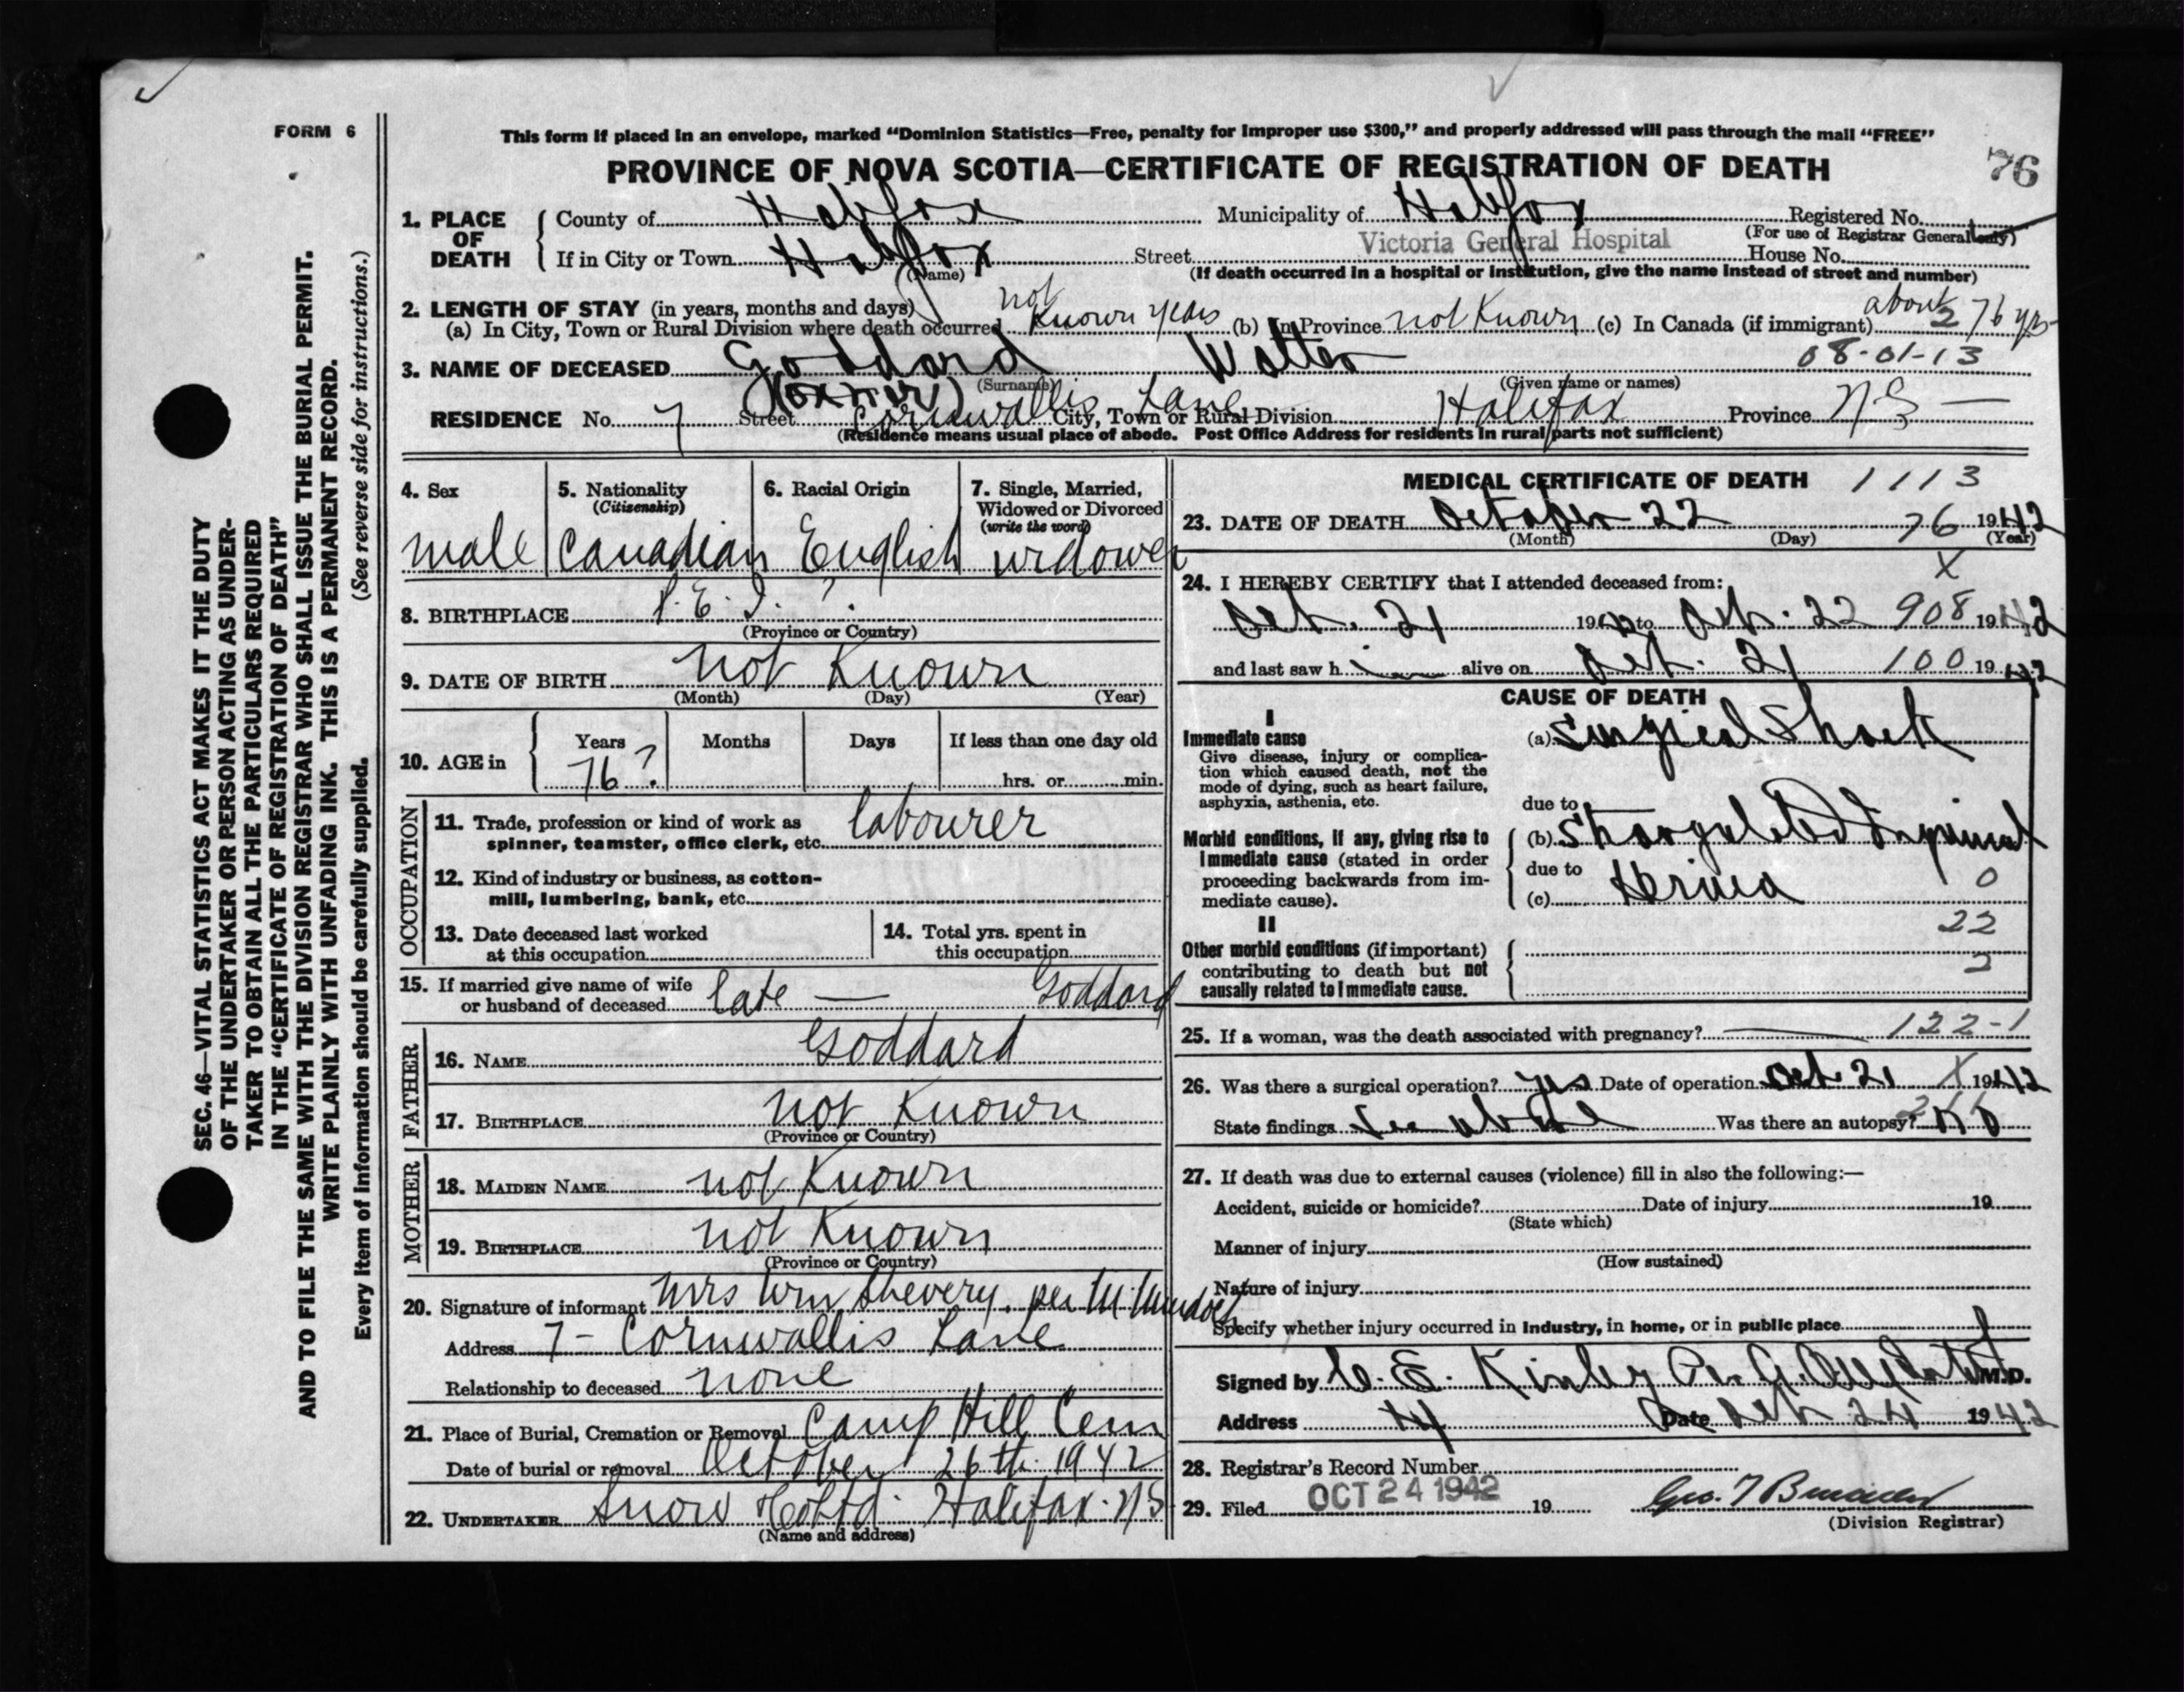 FORM 6
This form if placed in an envelope, marked “Dominion Statistics—Free, penalty for improper use $300,” and properly addressed will pass through the mail “FREE”
PROVINCE OF NOVA SCOTIA—CERTIFICATE OF REGISTRATION OF DEATH
76
1. PLACE OF DEATH
County of Halifax Municipality of Halifax Registered No.
(For use of Registrar General only)
If in City or Town Halifax Street Victoria General Hospital House No.
(Name) (If death occurred in a hospital or institution, give the name instead of street and number)
2. LENGTH OF STAY (in years, months and days)
(a) In City, Town or Rural Division where death occurred not Known years (b) In Province not Known (c) In Canada (if immigrant) about 76 yrs
3. NAME OF DECEASED Goddard Walter 08-01-13
(Surname) (Given name or names)
RESIDENCE No. 7 Street Cornwallis Lane City, Town or Rural Division Halifax Province N.S —
(Residence means usual place of abode. Post Office Address for residents in rural parts not sufficient)
SEC. 46—VITAL STATISTICS ACT MAKES IT THE DUTY
OF THE UNDERTAKER OR PERSON ACTING AS UNDER-
TAKER TO OBTAIN ALL THE PARTICULARS REQUIRED
IN THE “CERTIFICATE OF REGISTRATION OF DEATH”
AND TO FILE THE SAME WITH THE DIVISION REGISTRAR WHO SHALL ISSUE THE BURIAL PERMIT.
WRITE PLAINLY WITH UNFADING INK. THIS IS A PERMANENT RECORD.
Every item of information should be carefully supplied. (See reverse side for instructions.)
4. Sex
male
5. Nationality
(Citizenship)
Canadian
6. Racial Origin
English
7. Single, Married,
Widowed or Divorced
(write the word)
widower
8. BIRTHPLACE P.E.I. ?
(Province or Country)
9. DATE OF BIRTH not Known
(Month) (Day) (Year)
10. AGE in
Years Months Days If less than one day old
76 ? hrs. or min.
OCCUPATION
11. Trade, profession or kind of work as
spinner, teamster, office clerk, etc. labourer
12. Kind of industry or business, as cotton-
mill, lumbering, bank, etc.
13. Date deceased last worked
at this occupation
14. Total yrs. spent in
this occupation
15. If married give name of wife
or husband of deceased late — Goddard
FATHER
16. NAME Goddard
17. BIRTHPLACE not Known
(Province or Country)
MOTHER
18. MAIDEN NAME not Known
19. BIRTHPLACE not Known
(Province or Country)
20. Signature of informant Mrs Wm Shevery. per M.
Address 7 - Cornwallis Lane
Relationship to deceased none
21. Place of Burial, Cremation or Removal Camp Hill Cem
Date of burial or removal October 26th. 1942
22. UNDERTAKER Snow & Co Ltd. Halifax. NS
(Name and address)
MEDICAL CERTIFICATE OF DEATH 1113
23. DATE OF DEATH October 22 76 1942
(Month) (Day) (Year)
X
24. I HEREBY CERTIFY that I attended deceased from:
Oct. 21 1942 to Oct. 22 908 1942
and last saw h im alive on Oct. 21 100 1942
CAUSE OF DEATH
I
Immediate cause
Give disease, injury or complica-
tion which caused death, not the
mode of dying, such as heart failure,
asphyxia, asthenia, etc.
(a) Surgical Shock
due to
Morbid conditions, if any, giving rise to
immediate cause (stated in order
proceeding backwards from im-
mediate cause).
(b) Strangulated Inguinal
due to
(c) Hernia 0
22
2
II
Other morbid conditions (if important)
contributing to death but not
causally related to immediate cause.
25. If a woman, was the death associated with pregnancy? — 122-1
26. Was there a surgical operation? yes Date of operation Oct 21 X 1942
State findings See above Was there an autopsy? no
27. If death was due to external causes (violence) fill in also the following:—
Accident, suicide or homicide? Date of injury 19
(State which)
Manner of injury
(How sustained)
Nature of injury
Specify whether injury occurred in industry, in home, or in public place
Signed by C. E. Kinley M.D.
Address Date Oct 24 1942
28. Registrar's Record Number
29. Filed OCT 24 1942 19
(Division Registrar)